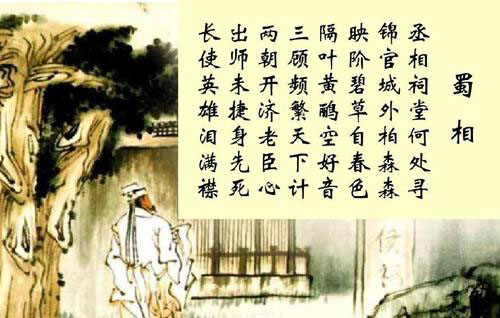 蜀相
丞相祠堂何处寻
锦官城外柏森森
映阶碧草自春色
隔叶黄鹂空好音
三顾频繁天下计
两朝开济老臣心
出师未捷身先死
长使英雄泪满襟
侯祠